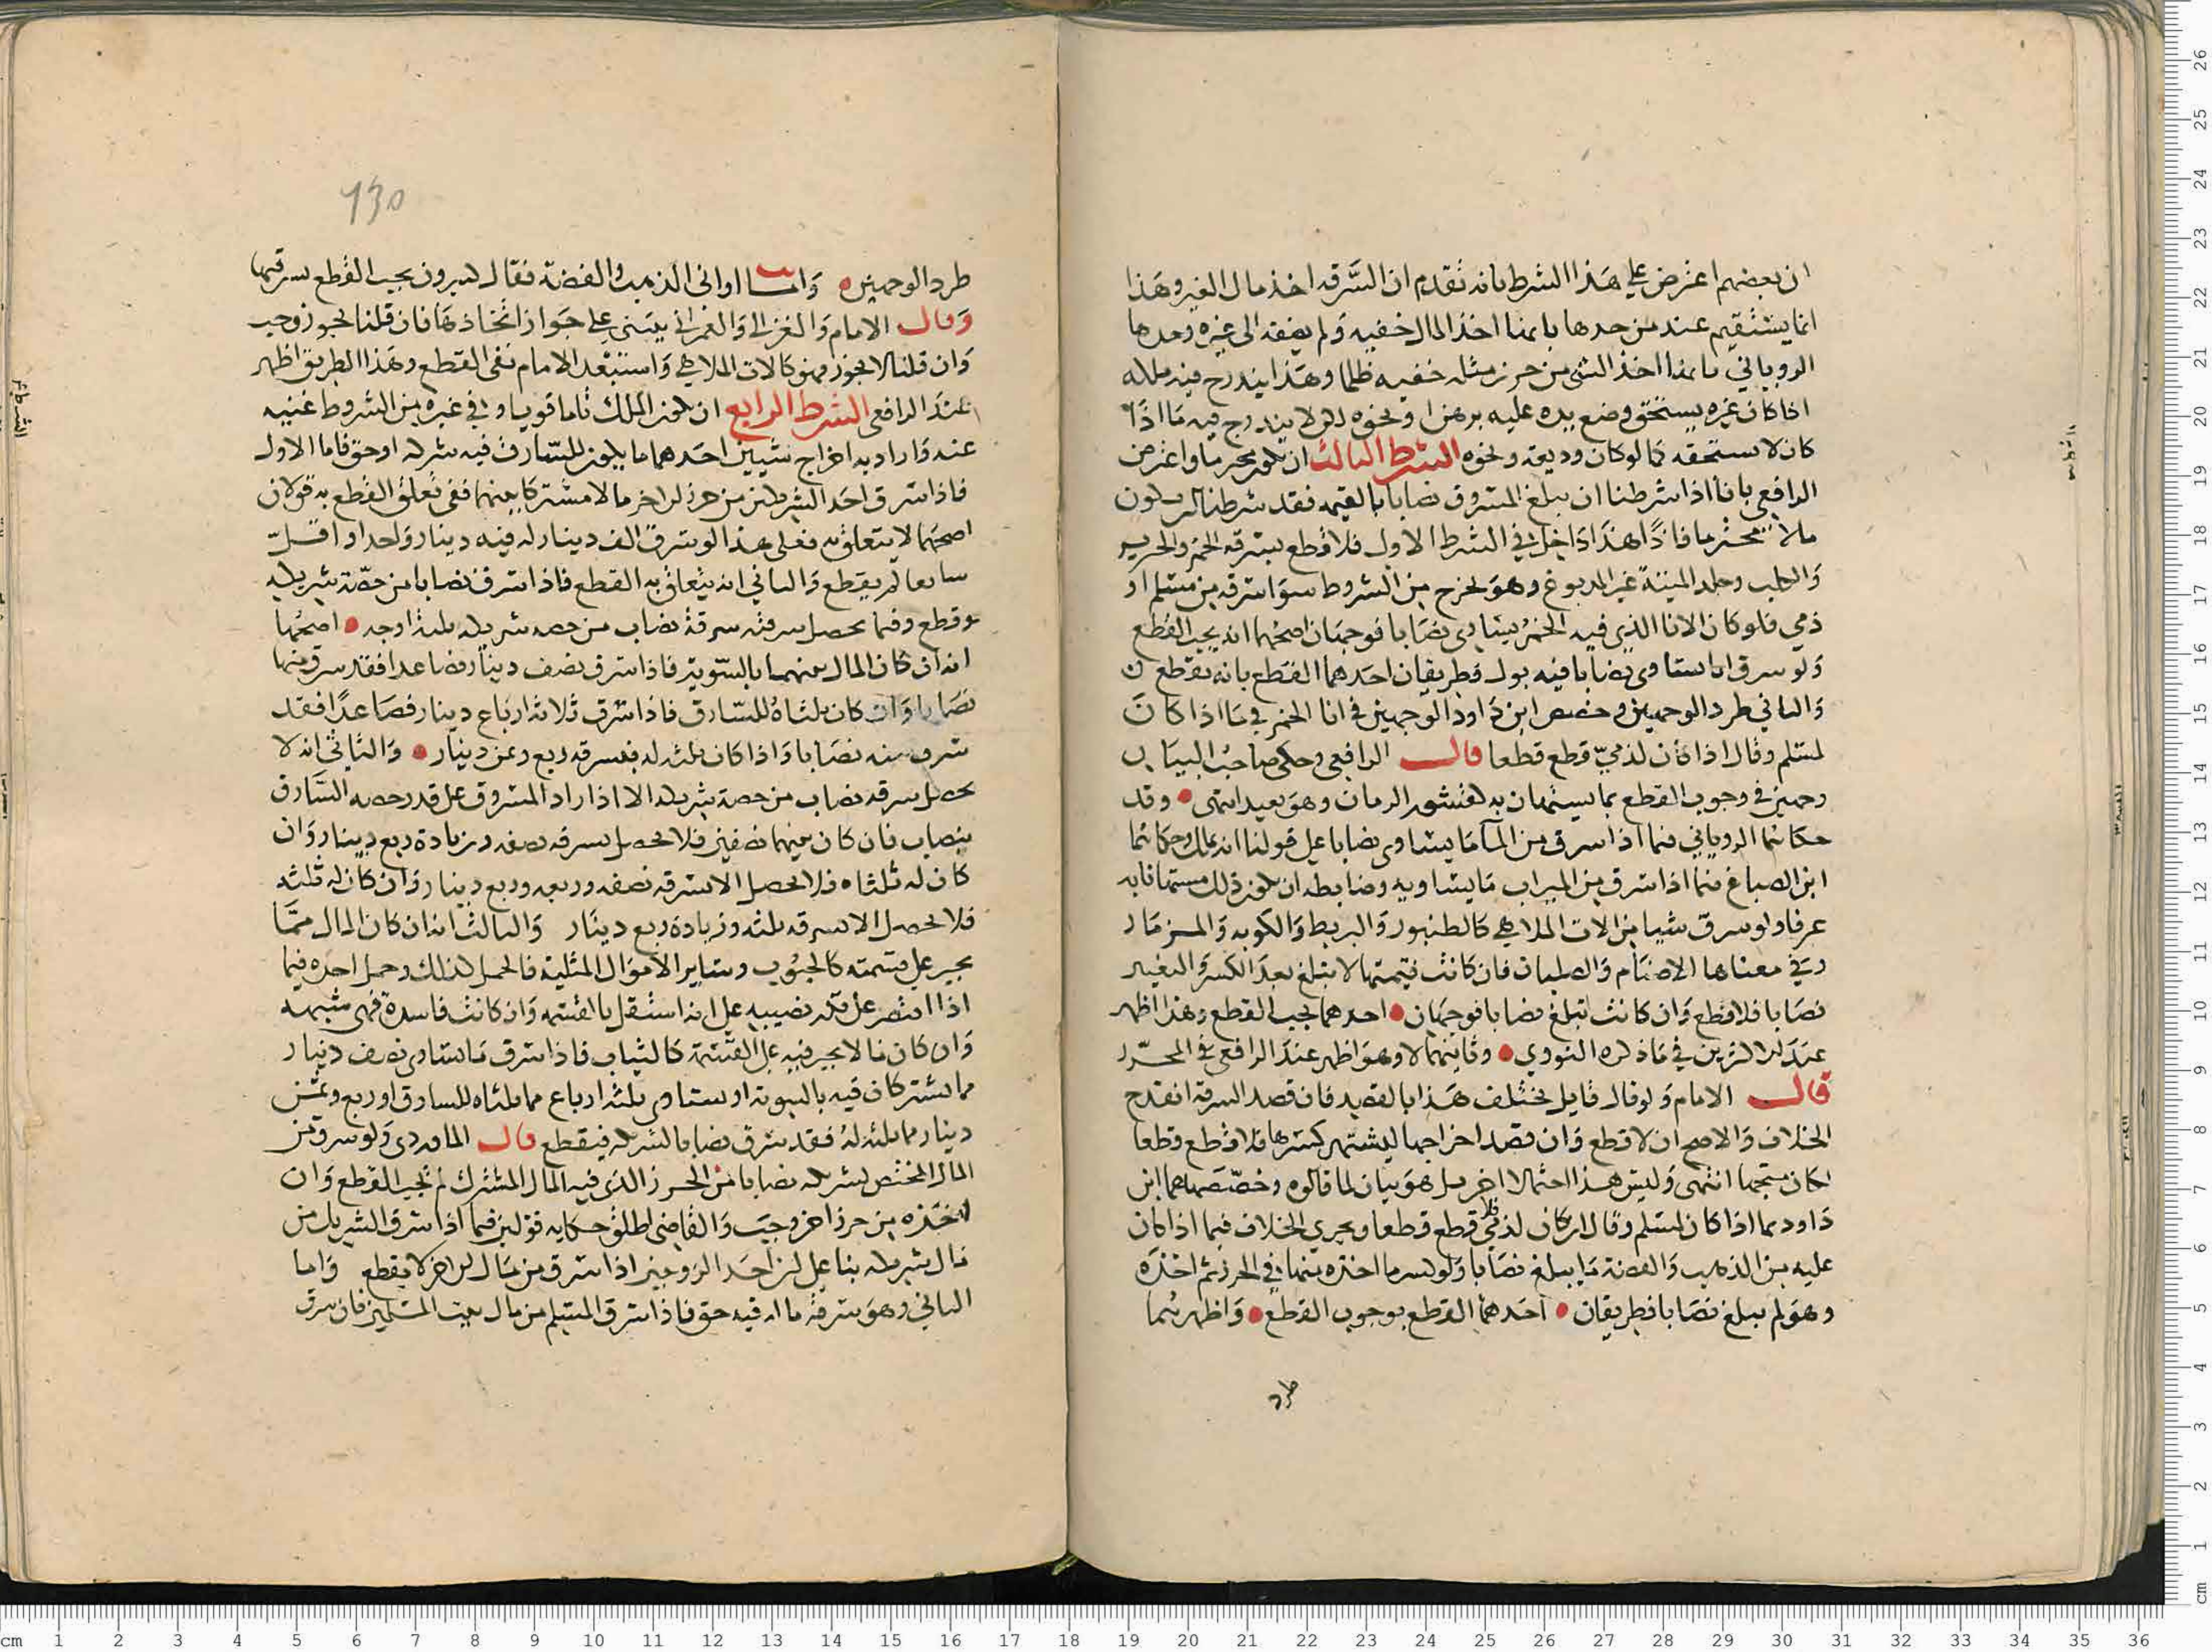 ان بعضهم اعترض على هذا الشرط بانه تقدم ان السرقه اخذ مال الغير وهذا
انما يستقيم عند من حدها بانها اخذ المال خفيه ولم يضفه الى غيره وحدها
الروياني بانها اخذ الشي من حرز مثله خفيه ظلما وهذا يندرج فيه ملكه
اذا كان غيره يستحق وضع يده عليه برهن او نحوه لكن لا يندرج فيه ما اذا
كان لا يستحقه كما لو كان وديعه ونحوه الشرط الثالث ان يكون محترما واعترض
الرافعي بانا اذا شرطنا ان يبلغ المسروق نصابا بالقيمه فقد شرطنا ان يكون
مالا محترما فاذًا هذا داخل في الشرط الاول فلا قطع بسرقه الخمر والخنزير
والكلب وجلد الميتة غير المدبوغ وهو يخرج من الشروط سوا سرقه من مسلم او
ذمي فلو كان الانا الذي فيه الخمر يساوي نصابا فوجهان اصحهما انه يجب القطع
ولو سرق انا يساوي نصابا فيه بول فطريقان احدهما القطع بانه يقطع
والثاني طرد الوجهين وخصص ابن داود الوجهين في انا الخمر في ما اذا كان
لمسلم وقال اذا كان لذميّ قطع قطعا قال الرافعي وحكى صاحب البيان
وجهين في وجوب القطع بما يستهان به كقشور الرمان وهو بعيد انتهى وقد
حكاهما الروياني فيما اذا سرق من الما ما يساوي نصابا على قولنا انه يملك وحكاهما
ابن الصباغ فيما اذا سرق من التراب ما يساويه وضابطه ان يكون ذلك مستهانا به
عرفا ولو سرق شيا من الات الملاهي كالطنبور والبربط والكوبه والمزمار
وفي معناها الاصنام والصلبان فان كانت قيمتها لا تبلغ بعد الكسر والتغيير
نصابا فلا قطع وان كانت تبلغ نصابا فوجهان احدهما يجب القطع وهذا اظهر
عند الاكثرين في ما ذكره النووي وثانيهما لا وهو اظهر عند الرافعي في المحرّر
قال الامام ولو قال قايل يختلف هذا بالقصد فان قصد السرقة انقدح
الخلاف والاصح ان لا قطع وان قصد اخراجها ليشتهر كسرها فلا قطع قطعا
لكان متجها انتهى وليس هذا احتمالا اخر بل هو بيان لما قالوه وخصّصهما ابن
داود بما اذا كان لمسلم وقال ان كان لذمي قطع قطعا ويجري الخلاف فيما اذا كان
عليه من الذهب والفضة ما يبلغ نصابا ولو كسر ما اخذه منها في الحرز ثم اخذه
وهو لم يبلغ نصابا فطريقان احدهما القطع بوجوب القطع واظهرهما
طرد
طرد الوجهين واما اواني الذهب والفضة فقال كثيرون يجب القطع بسرقتها
وقال الامام والغزالي والعمراني يبتني على جواز اتخاذها فان قلنا يجوز وجب
وان قلنا لا يجوز فهو كالات الملاهي واستبعد الامام نفي القطع وهذا الطريق اظهر
عند الرافعي الشرط الرابع ان يكون الملك تاما قويا وفي غيره من الشروط غنيه
عنه واراد به اخراج شيين احدهما ما يكون للسارق فيه شركه او حق فاما الاول
فاذا سرق احد الشريكين من حرز الاخر مالا مشتركا بينهما ففي تعلق القطع به قولان
اصحهما لا يتعلق به فعلى هذا لو سرق الف دينار له فيه دينار واحد او اقل
شايعا لم يقطع والثاني انه يتعلق به القطع فاذا سرق نصابا من حصّة شريكه
قطع وفيما يحصل بسرقته سرقة نصاب من حصه شريكه ثلثة اوجه اصحها
انه ان كان المال بينهما بالسّوية فاذا سرق نصف دينار فصاعدا فقد سرق منها
نصابا وان كان ثلثاه للسّارق فاذا سرق ثلاثة ارباع دينار فصاعدًا فقد
سرق منه نصابا واذا كان ثلثه له فبسرقه ربع وثمن دينار والثاني انه لا
يحصل سرقه نصاب من حصة شريكه الا اذا زاد المسروق على قدر حصه السّارق
بنصاب فان كان بينهما نصفين فلا يحصل بسرقه نصفه وزيادة ربع دينار وان
كان له ثلثاه فلا يحصل الا بسرقه نصفه وربعه وربع دينار وان كان له ثلثه
فلا يحصل الا بسرقه ثلثه وزيادة ربع دينار والثالث انه ان كان المال ممّا
يجبر على قسمته كالحبوب وساير الاموال المثلية فالحمل كذلك وحمل اخذه فيما
اذا اقتصر على قدر نصيبه على انه استقل بالقسمه وان كانت فاسدة فهي شبهه
وان كان مما لا يجبر فيه على القسمة كالثياب فاذا سرق ما يساوي نصف دينار
مما يشتركان فيه بالسويه او يساوي ثلثه ارباع مما ثلثاه للسارق او ربع وثمن
دينار مما ثلثه له فقد سرق نصابا بالشركه فيقطع قال الماوردي ولو سرق من
المال المختص بشريكه نصابا من الحرز الذي فيه المال المشترك لم يجب القطع وان
اخذه من حرز اخر وجب والقاضي اطلق حكايه قولين فيما اذا سرق الشريك من
مال شريكه بنا على ان احد الزوجين اذا سرق من مال الاخر لا يقطع واما
الثاني وهو سرقة ما له فيه حق فاذا سرق المسلم من مال بيت المسلمين فان سرق